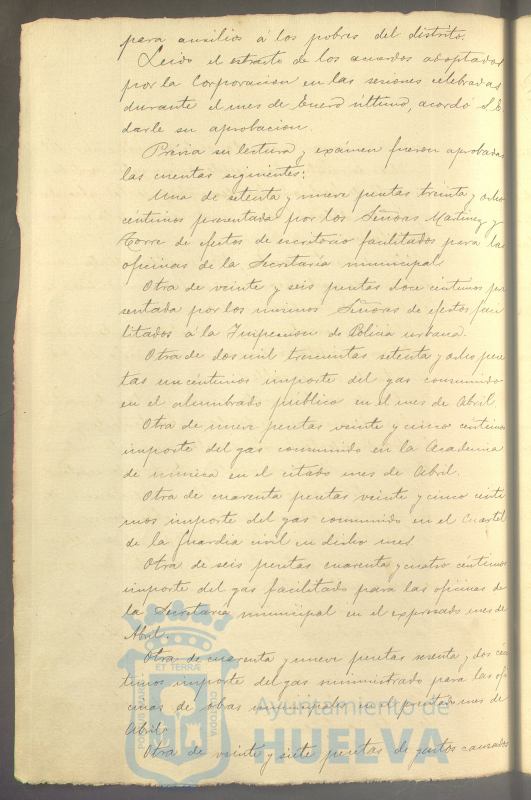 para auxilios á los pobres del distrito.
Leido el estracto de los acuerdos adoptados
por la Corporacion en las sesiones celebradas
durante el mes de Enero último, acordó el
darle su aprobacion.
Prévia su lectura y exámen fueron aprobadas
las cuentas siguientes:
Una de setenta y nueve pesetas treinta y ocho
centimos presentada por los Señores Martinez y
Torre de efectos de escritorio facilitados para las
oficinas de la Secretaría municipal.
Otra de veinte y seis pesetas doce centimos pre
sentada por los mismos Señores de efectos faci
litados á la Inspeccion de Policia urbana.
Otra de dos mil trescientas setenta y ocho pese
tas un céntimos importe del gas consumido
en el alumbrado público en el mes de Abril.
Otra de nueve pesetas veinte y cinco centimos
importe del gas consumido en la Academia
de música en el citado mes de Abril.
Otra de cuarenta pesetas veinte y cinco cénti
mos importe del gas consumido en el Cuartel
de la Guardia civil en dicho mes
Otra de seis pesetas cuarenta y cuatro céntimos
importe del gas facilitado para las oficinas de
la Secretaría municipal en el expresado mes de
Abril.
Otra de cuarenta y nueve pesetas sesenta y dos cén
timos importe del gas suministrado para las ofi
cinas de obras municipales en el precitado mes de
Abril.
Otra de veinte y siete pesetas de gastos causados
PORTUS MARIS ET TERRÆ CUSTODIA
Ayuntamiento de
HUELVA